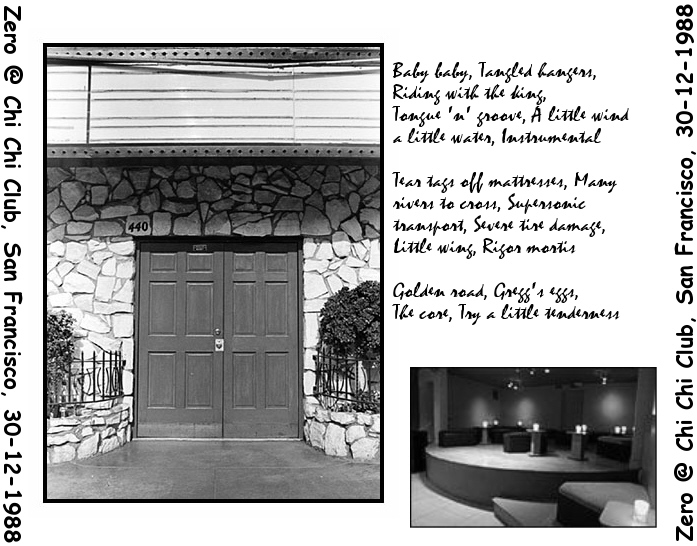 Zero @ Chi Chi Club, San Francisco, 30-12-1988
440
Baby baby, Tangled hangers,
Riding with the king,
Tongue 'n' groove, A little wind
a little water, Instrumental
Tear tags off mattresses, Many
rivers to cross, Supersonic
transport, Severe tire damage,
Little wing, Rigor mortis
Golden road, Gregg's eggs,
The core, Try a little tenderness
Zero @ Chi Chi Club, San Francisco, 30-12-1988